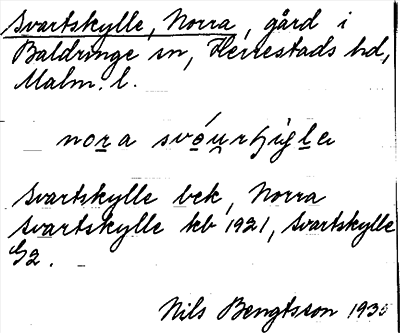 Svartskylle, Norra, gård i
Baldringe sn, Herrestads hd,
Malm. l.
Svartskylle bek, Norra
Svartskylle kb 1921, Svartskylle
G2.
Nils Bengtsson 1930